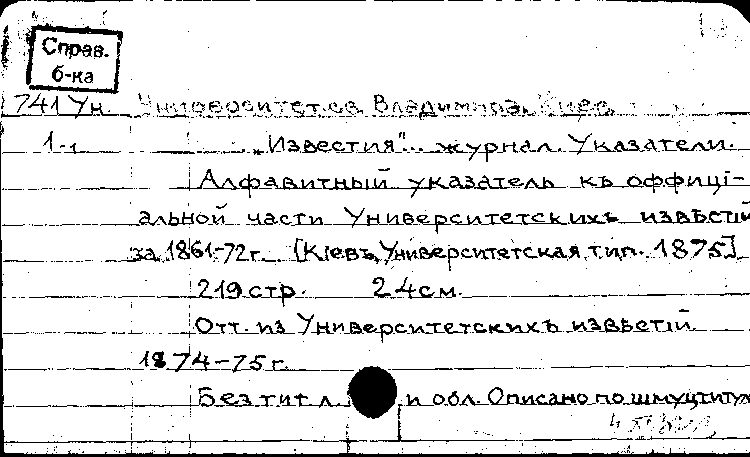 Справ.
б-ка
741 Ун. Университет св. Владимира. Киев.
1-1 „Известия“.. журнал. Указатели.
Алфавитный указатель къ оффиці-
альной части Университетскихъ извѣстій
за 1861-72 г. [Кіевъ, Университетская тип. 1875]
219 стр. 24 см.
Отт. из Университетскихъ извѣстій
1874-75 г.
Без тит л. и обл. Описано по шмуцтитул